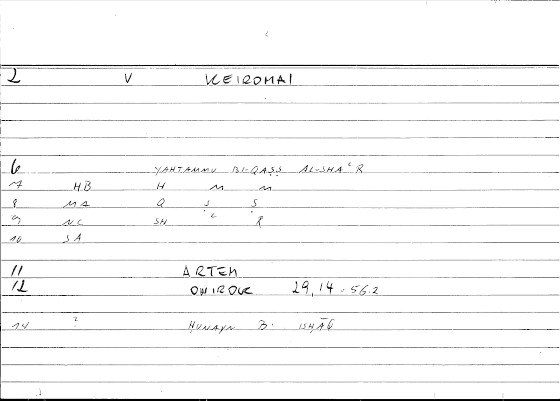 2 V KEIROMAI
6 YAHTAMMU BI-QAṢṢ AL-SHAʿR
7 HB H M M
8 MA Q Ṣ Ṣ
9 NC SH ʿ R
10 SA
11 ARTEM
12 ONIROCR 29,14 - 56.2
14 ? ḤUNAYN B. ISḤĀQ